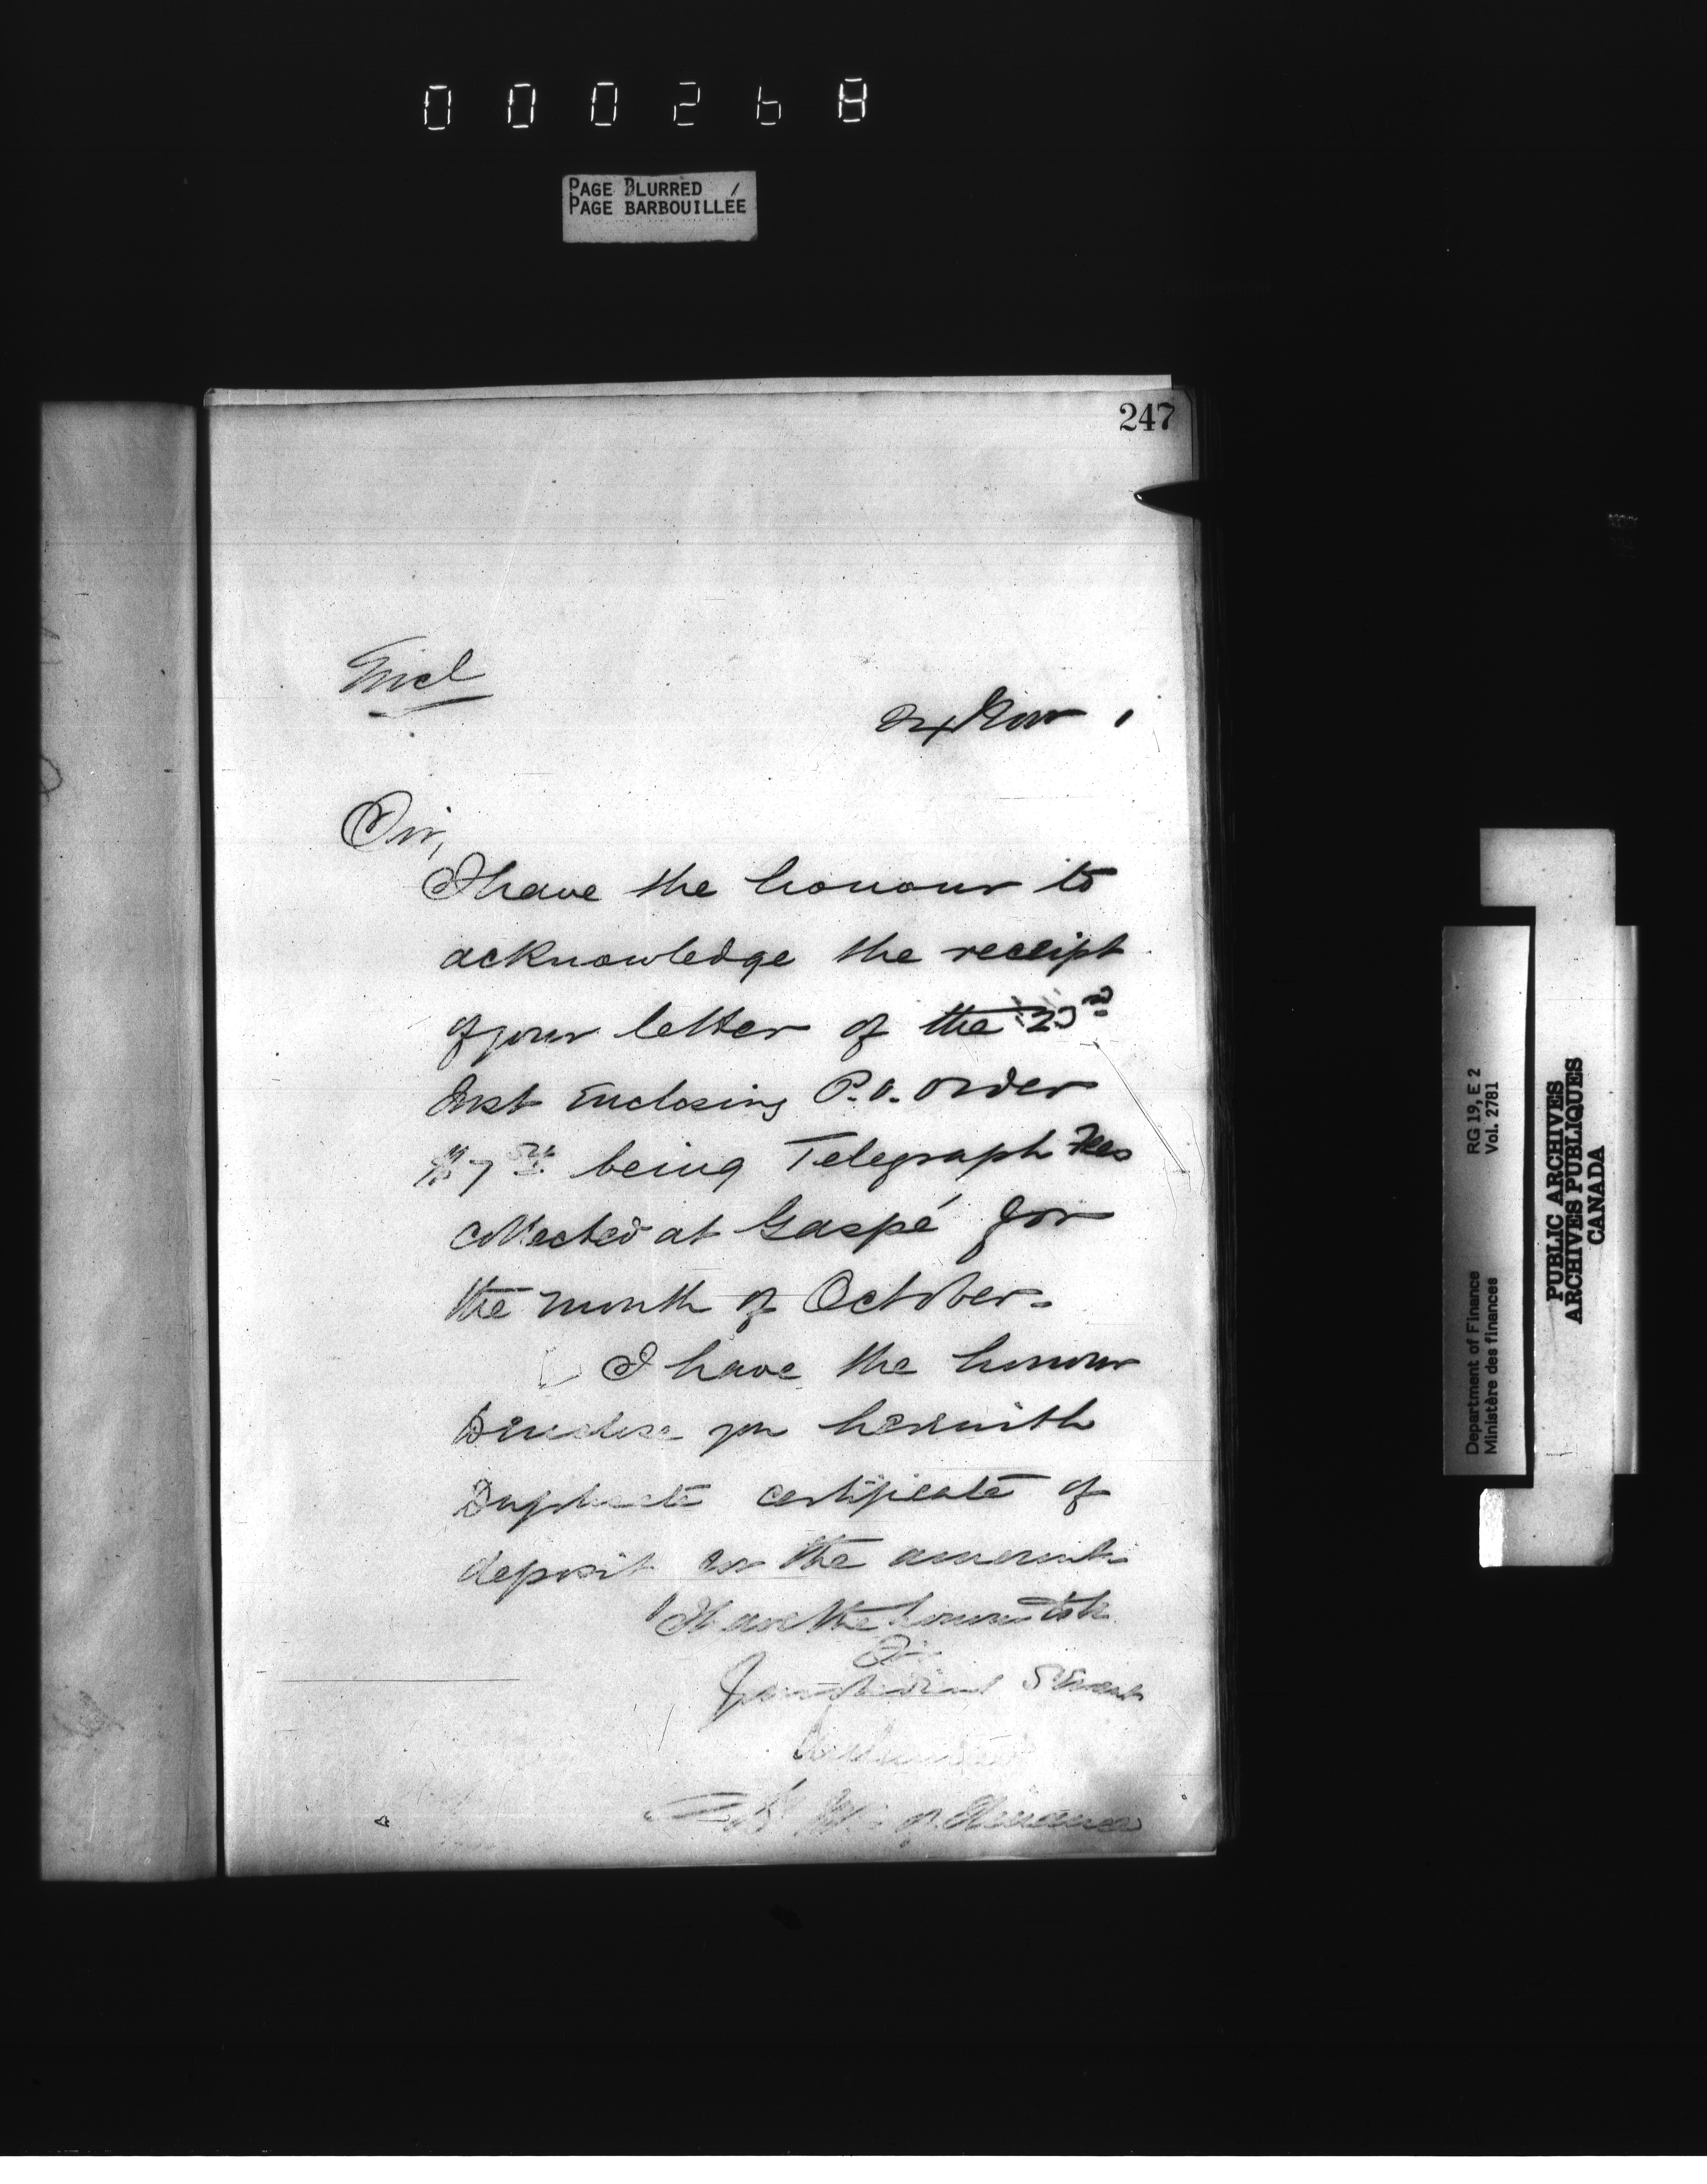 000268
PAGE BLURRED
PAGE BARBOUILLÉE
247
Encl
24 Nov
Sir,
I have the honour to
acknowledge the receipt
of your letter of the 23rd
Inst Enclosing P.O. Order
$7 being Telegraph Fees
collected at Gaspé for
the month of October.
I have the honour
to enclose you herewith
Duplicate certificate of
deposit for the amount
I have the honour to be
Sir
Your obedient Servant
D M of Finance
Department of Finance RG 19, E 2
Ministère des finances Vol. 2781
PUBLIC ARCHIVES
ARCHIVES PUBLIQUES
CANADA